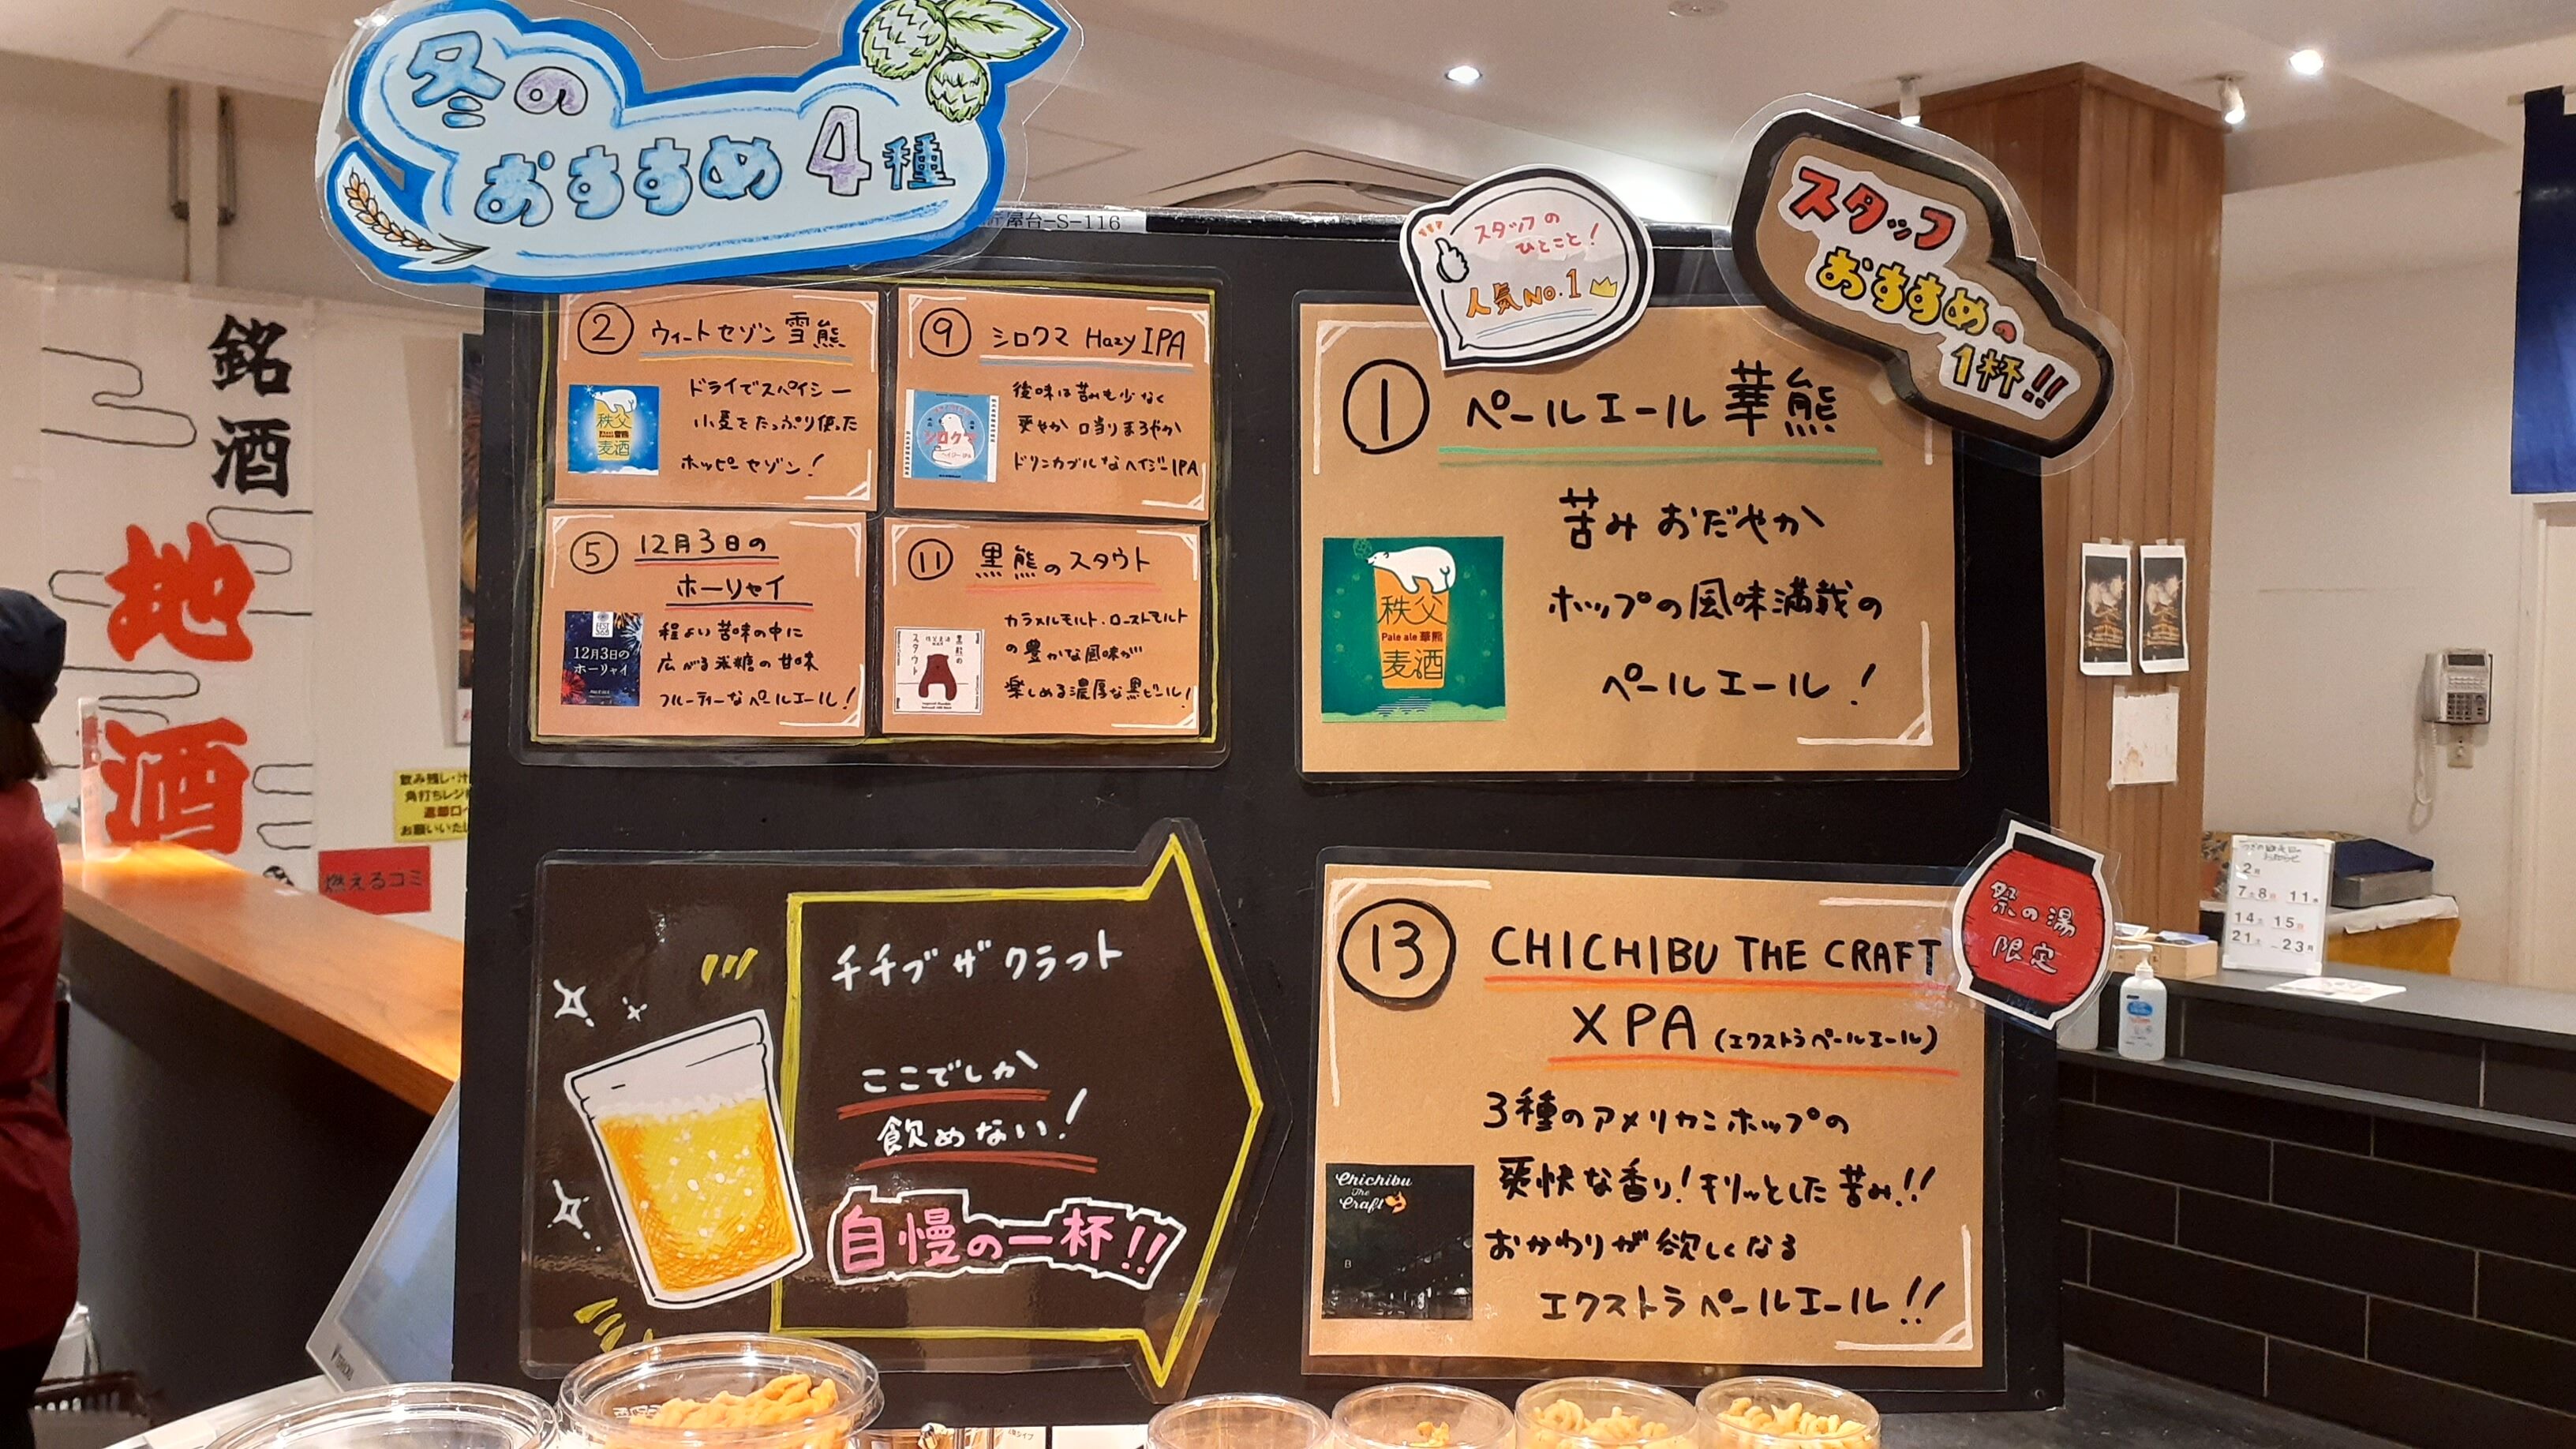 冬の
おすすめ4種
匠屋台-S-116
② ウィートセゾン 雪熊
ドライでスペイシー
小麦をたっぷり使った
ホッピーセゾン!
秩父
麦酒
⑨ シロクマ Hazy IPA
後味は苦みも少なく
爽やか 口当りまろやか
ドリンカブルなヘイジーIPA
シロクマ
⑤ 12月3日の
ホーリャイ
程よい苦味の中に
広がる米糖の甘味
フルーティーなペールエール!
12月3日の
ホーリャイ
⑪ 黒熊のスタウト
カラメルモルト・ローストモルト
の豊かな風味が
楽しめる濃厚な黒ビール!
黒熊の
スタウト
スタッフの
ひとこと!
人気No.1
スタッフ
おすすめの
1杯!!
① ペールエール 華熊
苦み おだやか
ホップの風味満載の
ペールエール!
秩父
Pale ale 華熊
麦酒
チチブ ザ クラフト
ここでしか
飲めない!
自慢の一杯!!
⑬ CHICHIBU THE CRAFT
XPA (エクストラペールエール)
3種のアメリカンホップの
爽快な香り! キリッとした苦み!!
おかわりが欲しくなる
エクストラペールエール!!
Chichibu
The
Craft
祭の湯
限定
銘酒
地酒
飲み残し・汁
角打ちレジ
返却口へ
お願いいたし
燃えるゴミ
2月
7土 8日 11水
14土 15日
21土 ~ 23月